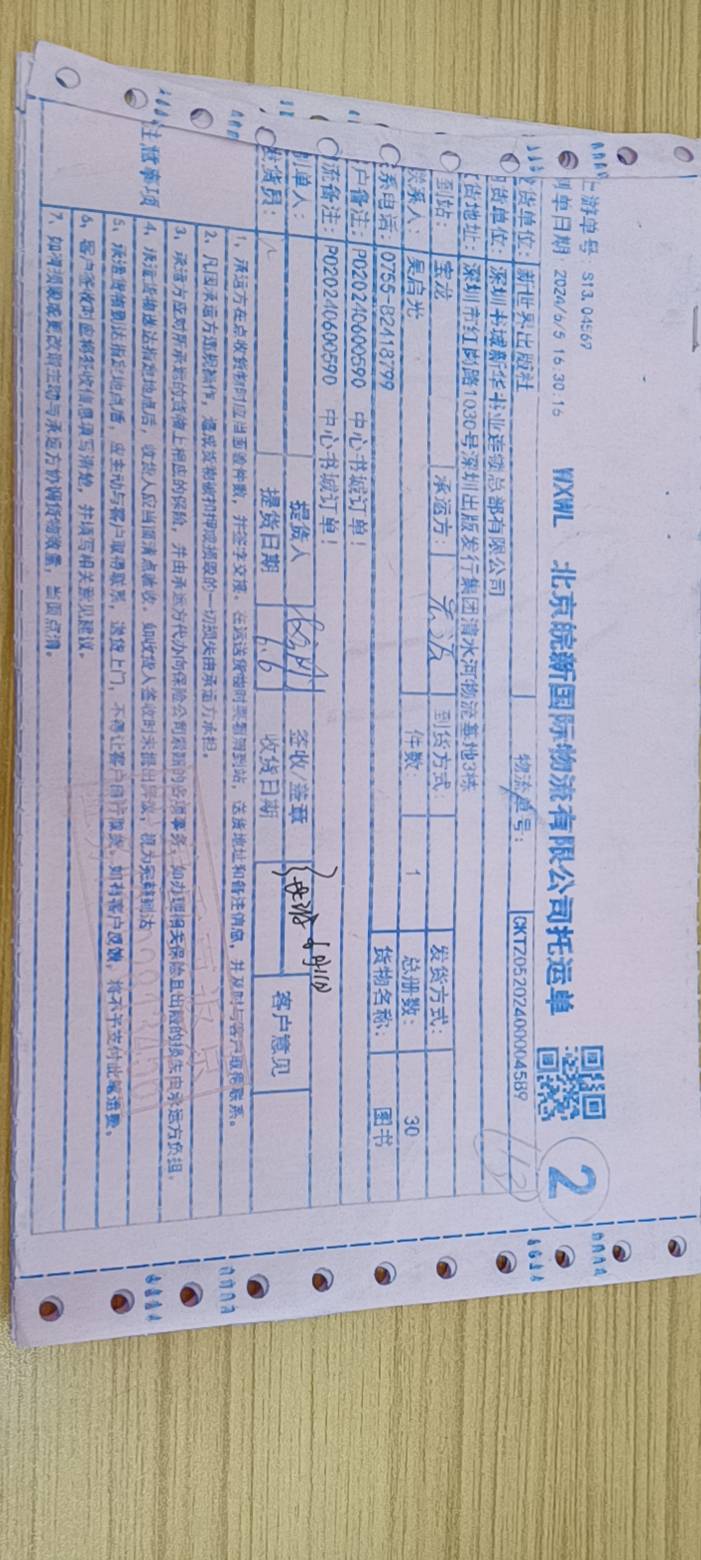 游单号 S13.04567
WXWL 北京皖新国际物流有限公司托运单
2
单日期 2024/6/5 16:30:16
货单位: 新世界出版社 物流单号: CKTZ05202400004589
货单位: 深圳书城新华书业连锁总部有限公司
货地址: 深圳市红岗路1030号深圳出版发行集团清水河物流基地3栋
到站: 宝龙 承运方: 到货方式: 发货方式:
联系人: 吴启光 件数: 1 总册数: 30
系电话: 0755-82418799 货物名称: 图书
户备注: PO20240600590 中心书城订单!
流备注: PO20240600590 中心书城订单!
制单人: 提货人 签收/盖章
发货员: 提货日期 6.6 收货日期 客户意见
注意事项
1、承运方在点收货物时应当面查件数，并签字交接。在运送货物时要看清到站，送货地址和备注信息，并及时与客户取得联系。
2、凡因承运方违规操作，造成货物破扣押或损毁的一切损失由承运方承担。
3、承运方应对所承运的货物上相应的保险，并由承运方代办向保险公司索赔的各项事务，如办理相关保险且出险的损失由承运方负担。
4、承运货物送达指定地点后，收货人应当面清点验收。如收货人签收时未提出异议，视为完好到达
5、承运货物到达指定地点后，应主动与客户取得联系，送货上门，不得让客户自行取货，如有客户反馈，将不予支付此笔运费。
6、客户签收时应将签收信息填写清楚，并填写相关意见建议。
7、如有损毁或更改请主动与承运方协调货物数量，当面点清。